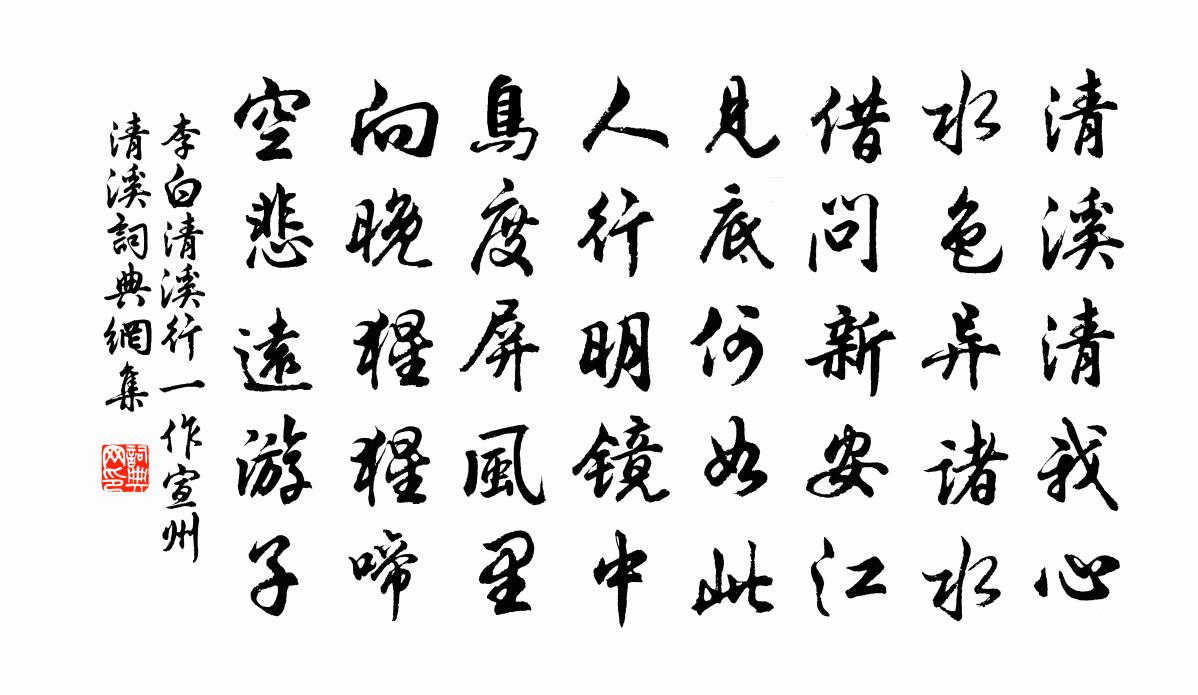 清溪清我心
水色异诸水
借问新安江
见底何如此
人行明镜中
鳥度屏風里
向晚猩猩啼
空悲遠游子
李白清溪行一作宣州
清溪詞典網集
詞典
网印